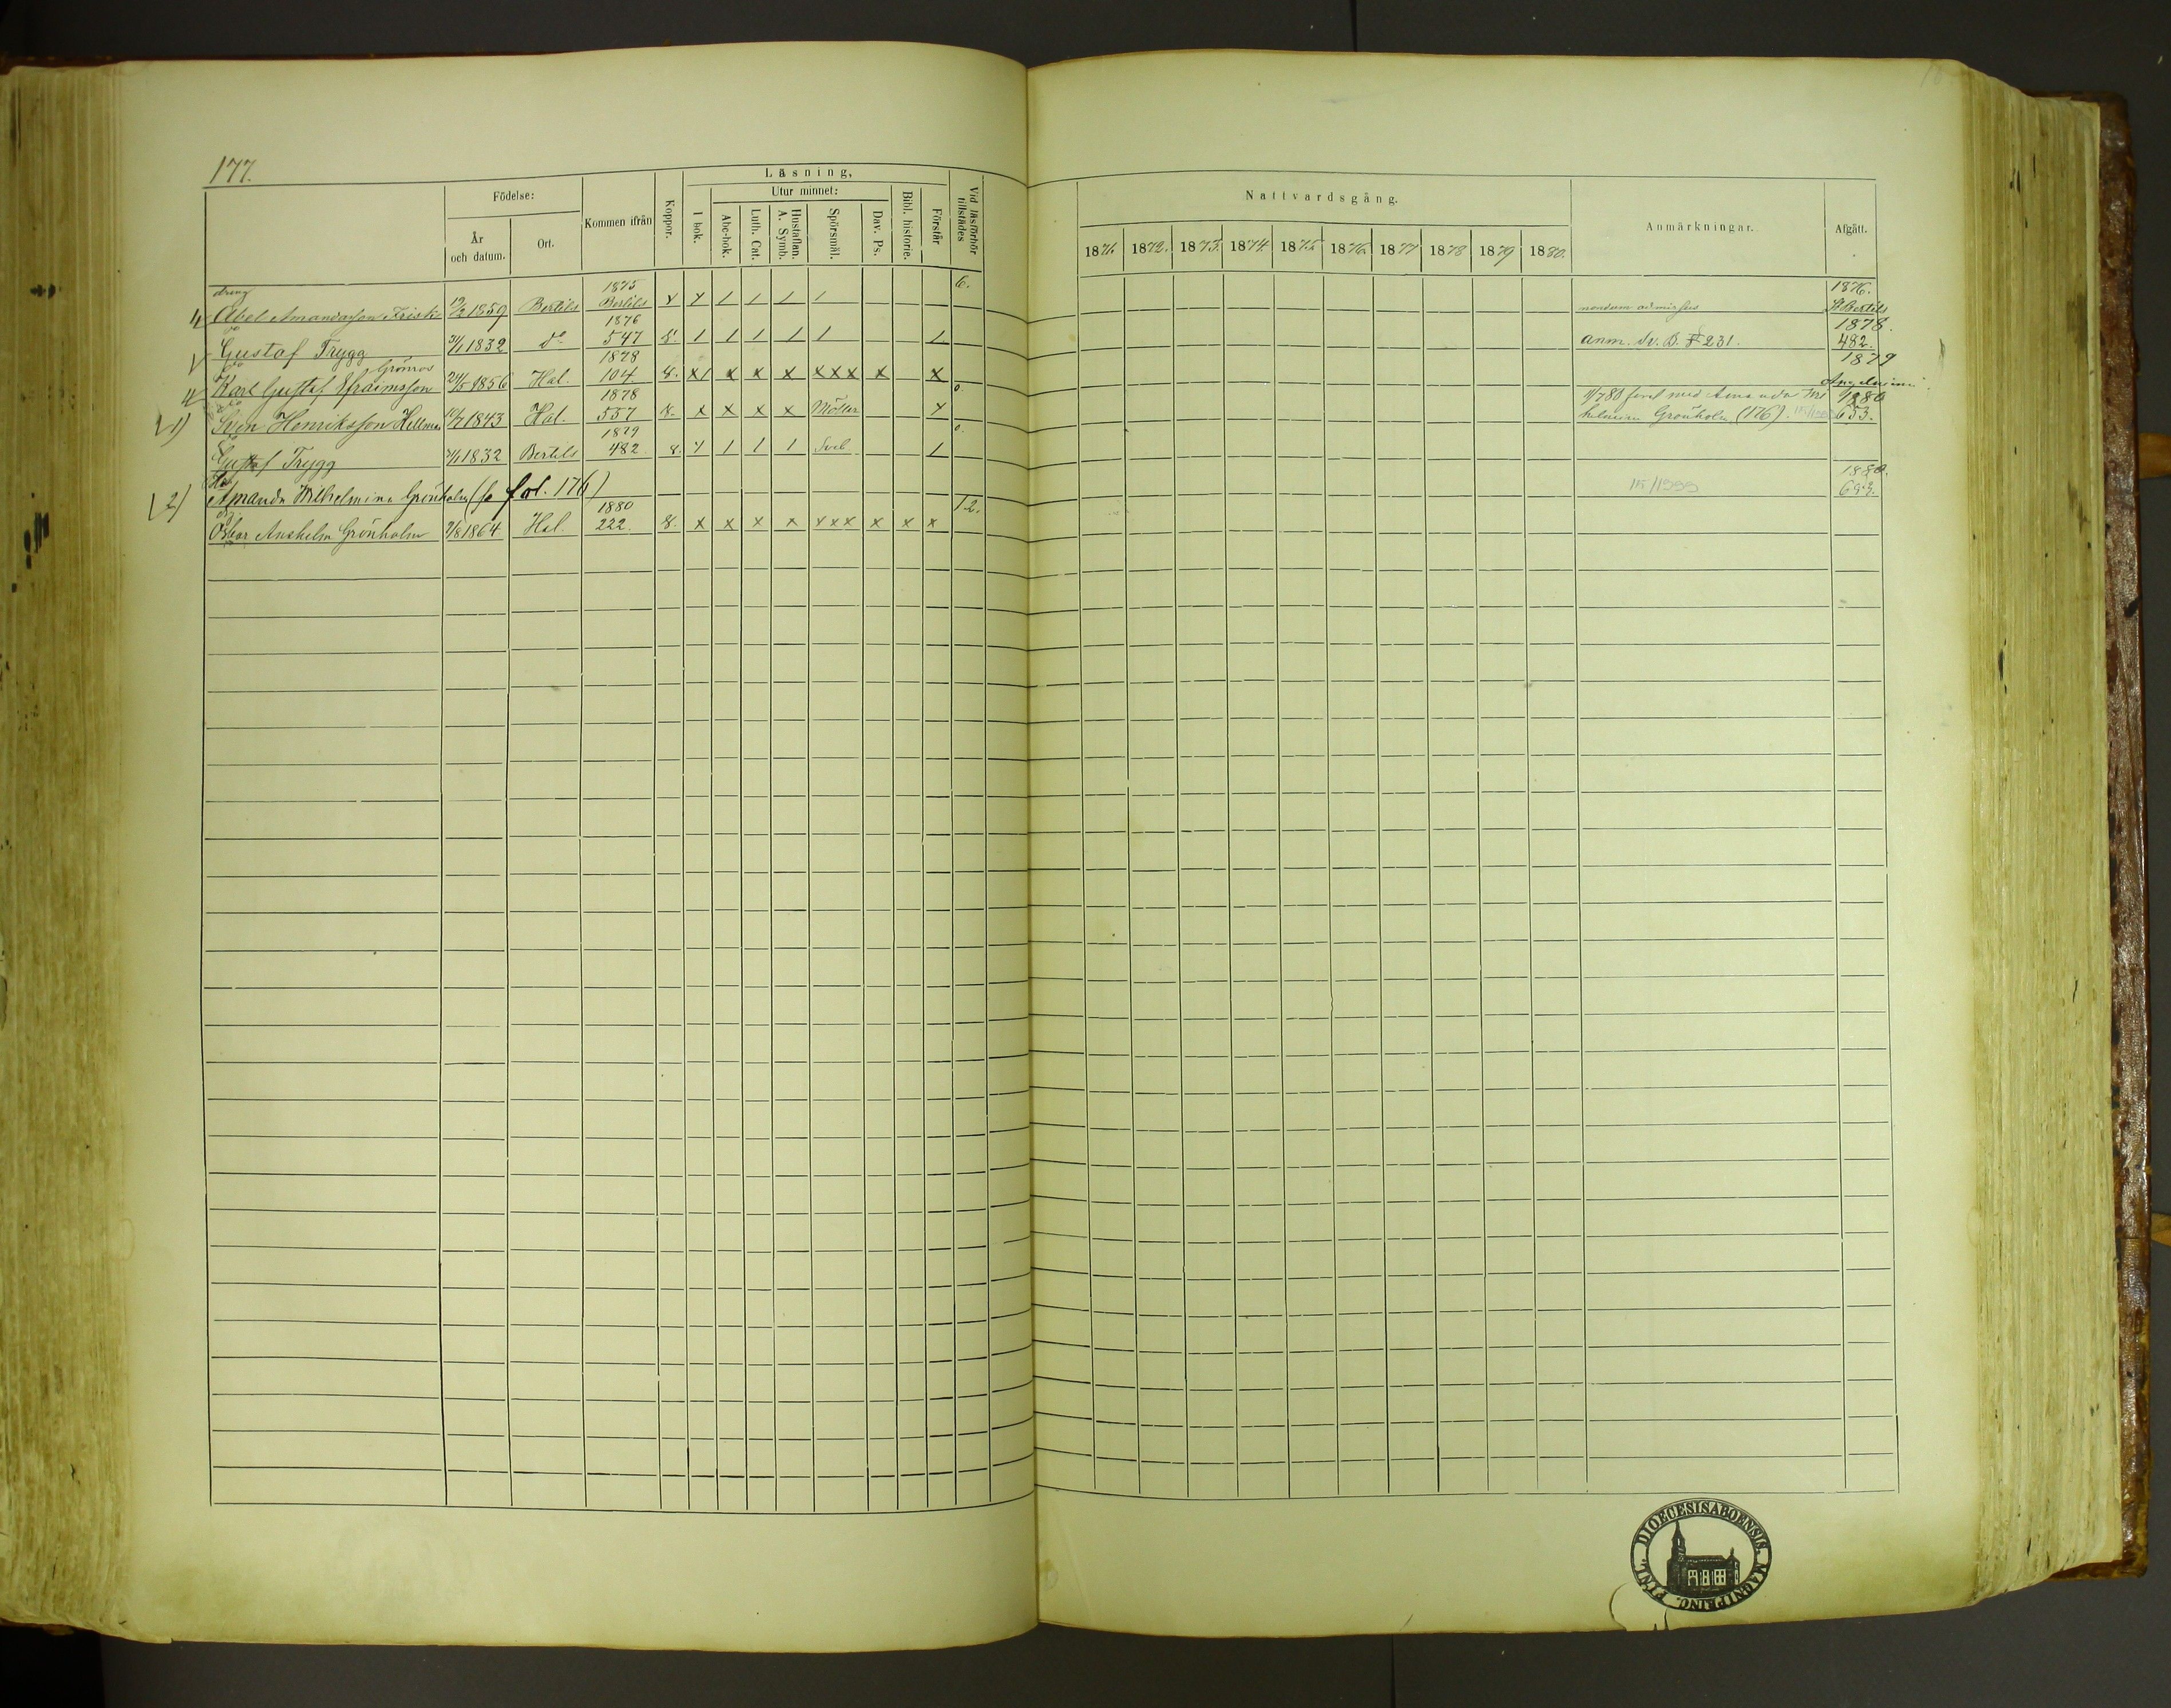 177.
Läsning,
Födelse: Kommen ifrån Koppor. I bok. Utur minnet: Bibl. historie. Förstår Vid läsförhör tillstädes Nattvardsgång. Anmärkningar. Afgått.
År och datum. Ort. Abc-bok. Luth. Cat. Hustaflan. A. Symb. Spörsmål. Dav. Ps. 1871. 1872. 1873. 1874. 1875. 1876. 1877 1878 1879 1880.
dreng 1875 6. 1876.
Abel Amandason Frisk 19/2 1859 Bertils Bertils nondum admissus St Bertils
1876 1878.
Gustaf Trygg 31/1 1832 do 547 8. anm. Sv. B. 231. 482.
Grönros 1878 1879
Karl Gustaf Efraimsson 24/5 1856 Hal. 104. 8. x x x x xxx x x Angelniemi
1878 0. 11/7 80 med Amanda Wil 1880
1) Sven Henriksson Hellman 1843 Hal. 557 8. x x x x Möller helmina Grönholm (176). 653.
1879 0.
Gustaf Trygg 31/1 1832 Bertils 482. 8. Sveb
1880.
2) Amanda Wilhelmina Grönholm (fr fol. 176) 653.
1880 12.
Oskar Anshelm Grönholm 2/8 1864 Hal. 222. 8. x x x x xxx x x x
DIOECESIS ABOENSIS. MAGNI PRINC. FINL.